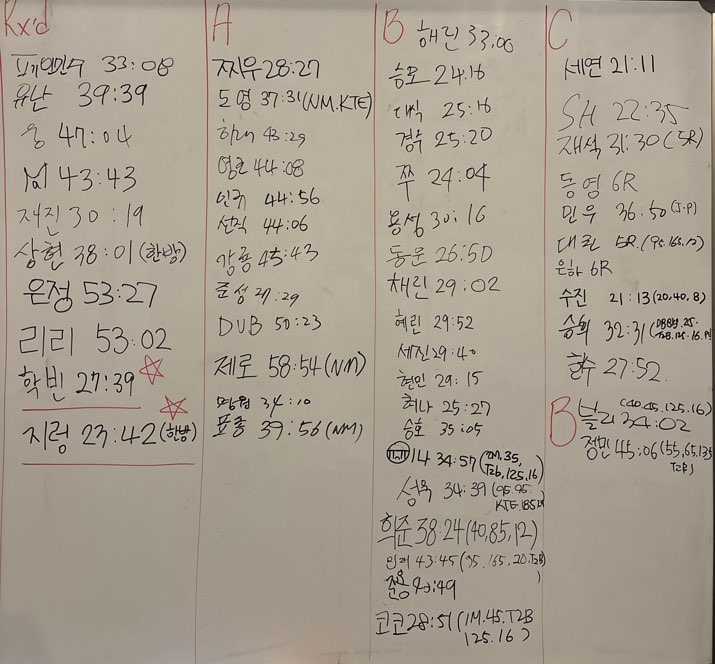 Rx'd
33:08
유난 39:39
웅 47:04
43:43
저진 30:19
상현 38:01(한방)
은정 53:27
리리 53:02
학빈 27:39
지렁 23:42(한방)
A
찌우 28:27
도영 37:31(NM.KTE)
43:29
영근 44:08
인규 44:56
선직 44:06
강룡 45:43
준성 27:29
DUB 50:23
제로 58:54(NM)
34:10
표종 39:56(NM)
B
해린 33:00
승모 24:16
대식 25:16
경수 25:20
쭈 24:04
용성 30:16
동운 26:50
채린 29:02
혜린 29:52
세진 29:40
현민 29:15
허나 25:27
승호 35:05
14 34:57(1M.35,
T2b,125,16)
성욱 34:39(95.95.
희준 38:24(40,85,12)
43:45(95.165,20.T2B
)
준용 42:49
코코 28:51(1M.45.T2B
125.16)
C
세연 21:11
SH 22:35
재석 31:30(5R)
동영 6R
민우 36:50(J.P)
5R.(95.165.12)
은하 6R
수진 21:13(20,40,B)
승희 32:31
현수 27:52
B
(40.45.125.16)
블리 34:02
정민 45:06(55,65.135
T2B)